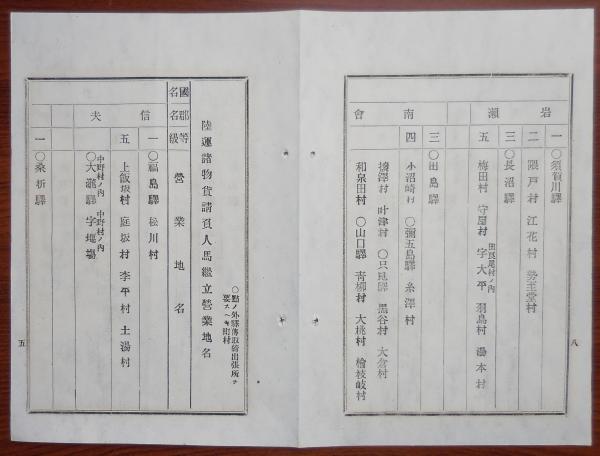 岩瀬
一 ○須賀川驛
二 隈戸村 江花村 勢至堂村
三 ○長沼驛
五 梅田村 守屋村 田良尾村ノ内 字大平 羽鳥村 湯本村
南會
三 ○田島驛
四 小沼崎村 ○彌五島驛 糸澤村
叶津村 ○只見驛 黒谷村 大倉村
和泉田村 ○山口驛 靑柳村 大桃村 檜枝岐村
八
○點ノ外驛傳取締出張所ヲ
要スヘキ町村
陸運諸物貨請負人馬繼立營業地名
國名 郡名 等級 營業地名
信夫
一 ○福島驛 松川村
五 上飯坂村 庭坂村 李平村 土湯村
中野村ノ内 ○大瀧驛 中野村ノ内 字堰場
一 ○桑折驛
五